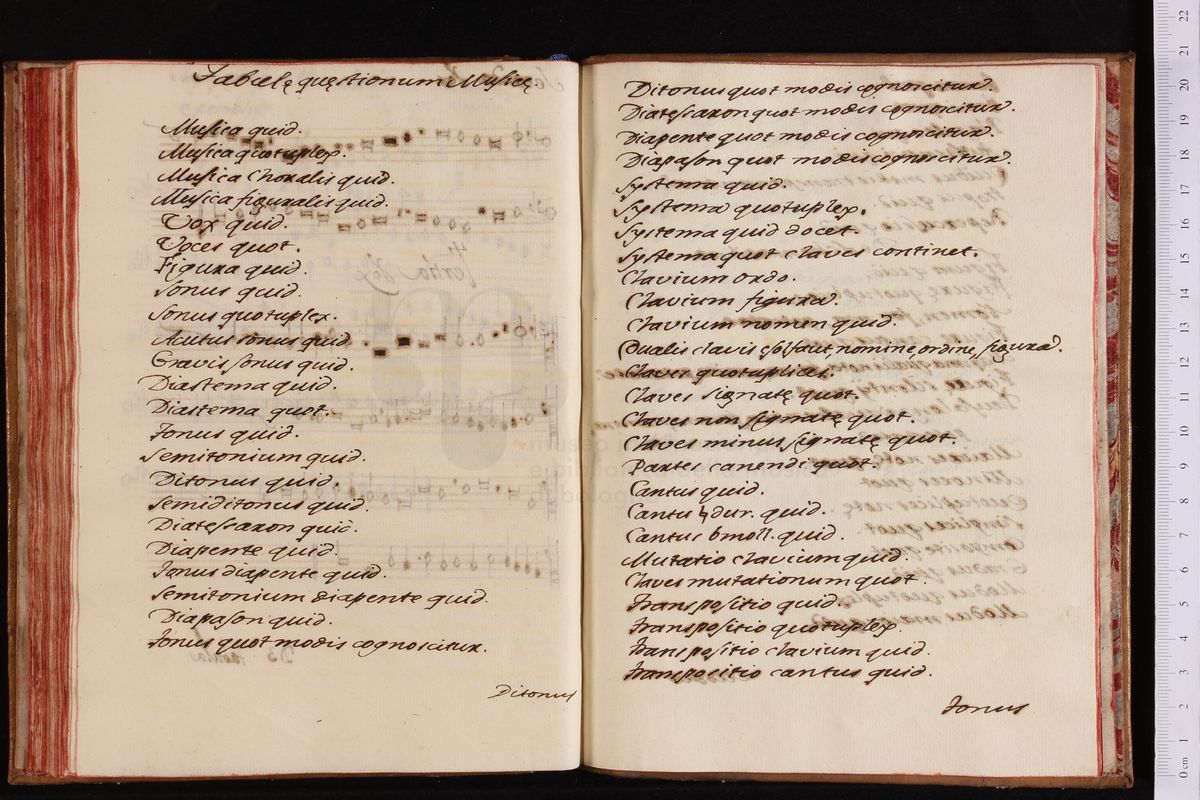 Tabelę quęstionum Musicę
Musica quid.
Musica quotuplex.
Musica Choralis quid.
Musica figuralis quid.
Vox quid.
Voces quot.
Figura quid.
Sonus quid.
Sonus quotuplex.
Acutus sonus quid.
Gravis sonus quid.
Diastema quid.
Diastema quot.
Tonus quid.
Semitonium quid.
Ditonus quid.
Semiditonus quid.
Diatessaron quid.
Diapente quid.
Tonus diapente quid.
Semitonium diapente quid.
Diapason quid.
Tonus quot modis cognoscitur.
Ditonus
Ditonus quot modis cognoscitur.
Diatessaron quot modis cognoscitur.
Diapente quot modis cognoscitur.
Diapason quot modis cognoscitur.
Systema quid.
Systema quotuplex.
Systema quid docet.
Systema quot claves continet.
Clavium ordo.
Clavium figura.
Clavium nomen quid.
Qualis clavis csolfaut, nomine, ordine, figura.
Claves quotuplices.
Claves signatę quot.
Claves non signatę quot.
Claves minus signatę quot.
Partes canendi quot.
Cantus quid.
Cantus ♮ dur. quid.
Cantus bmoll. quid.
Mutatio clavium quid.
Claves mutationum quot.
Transpositio quid.
Transpositio quotuplex
Transpositio clavium quid.
Transpositio cantus quid.
Tonus
0 cm 1 2 3 4 5 6 7 8 9 10 11 12 13 14 15 16 17 18 19 20 21 22